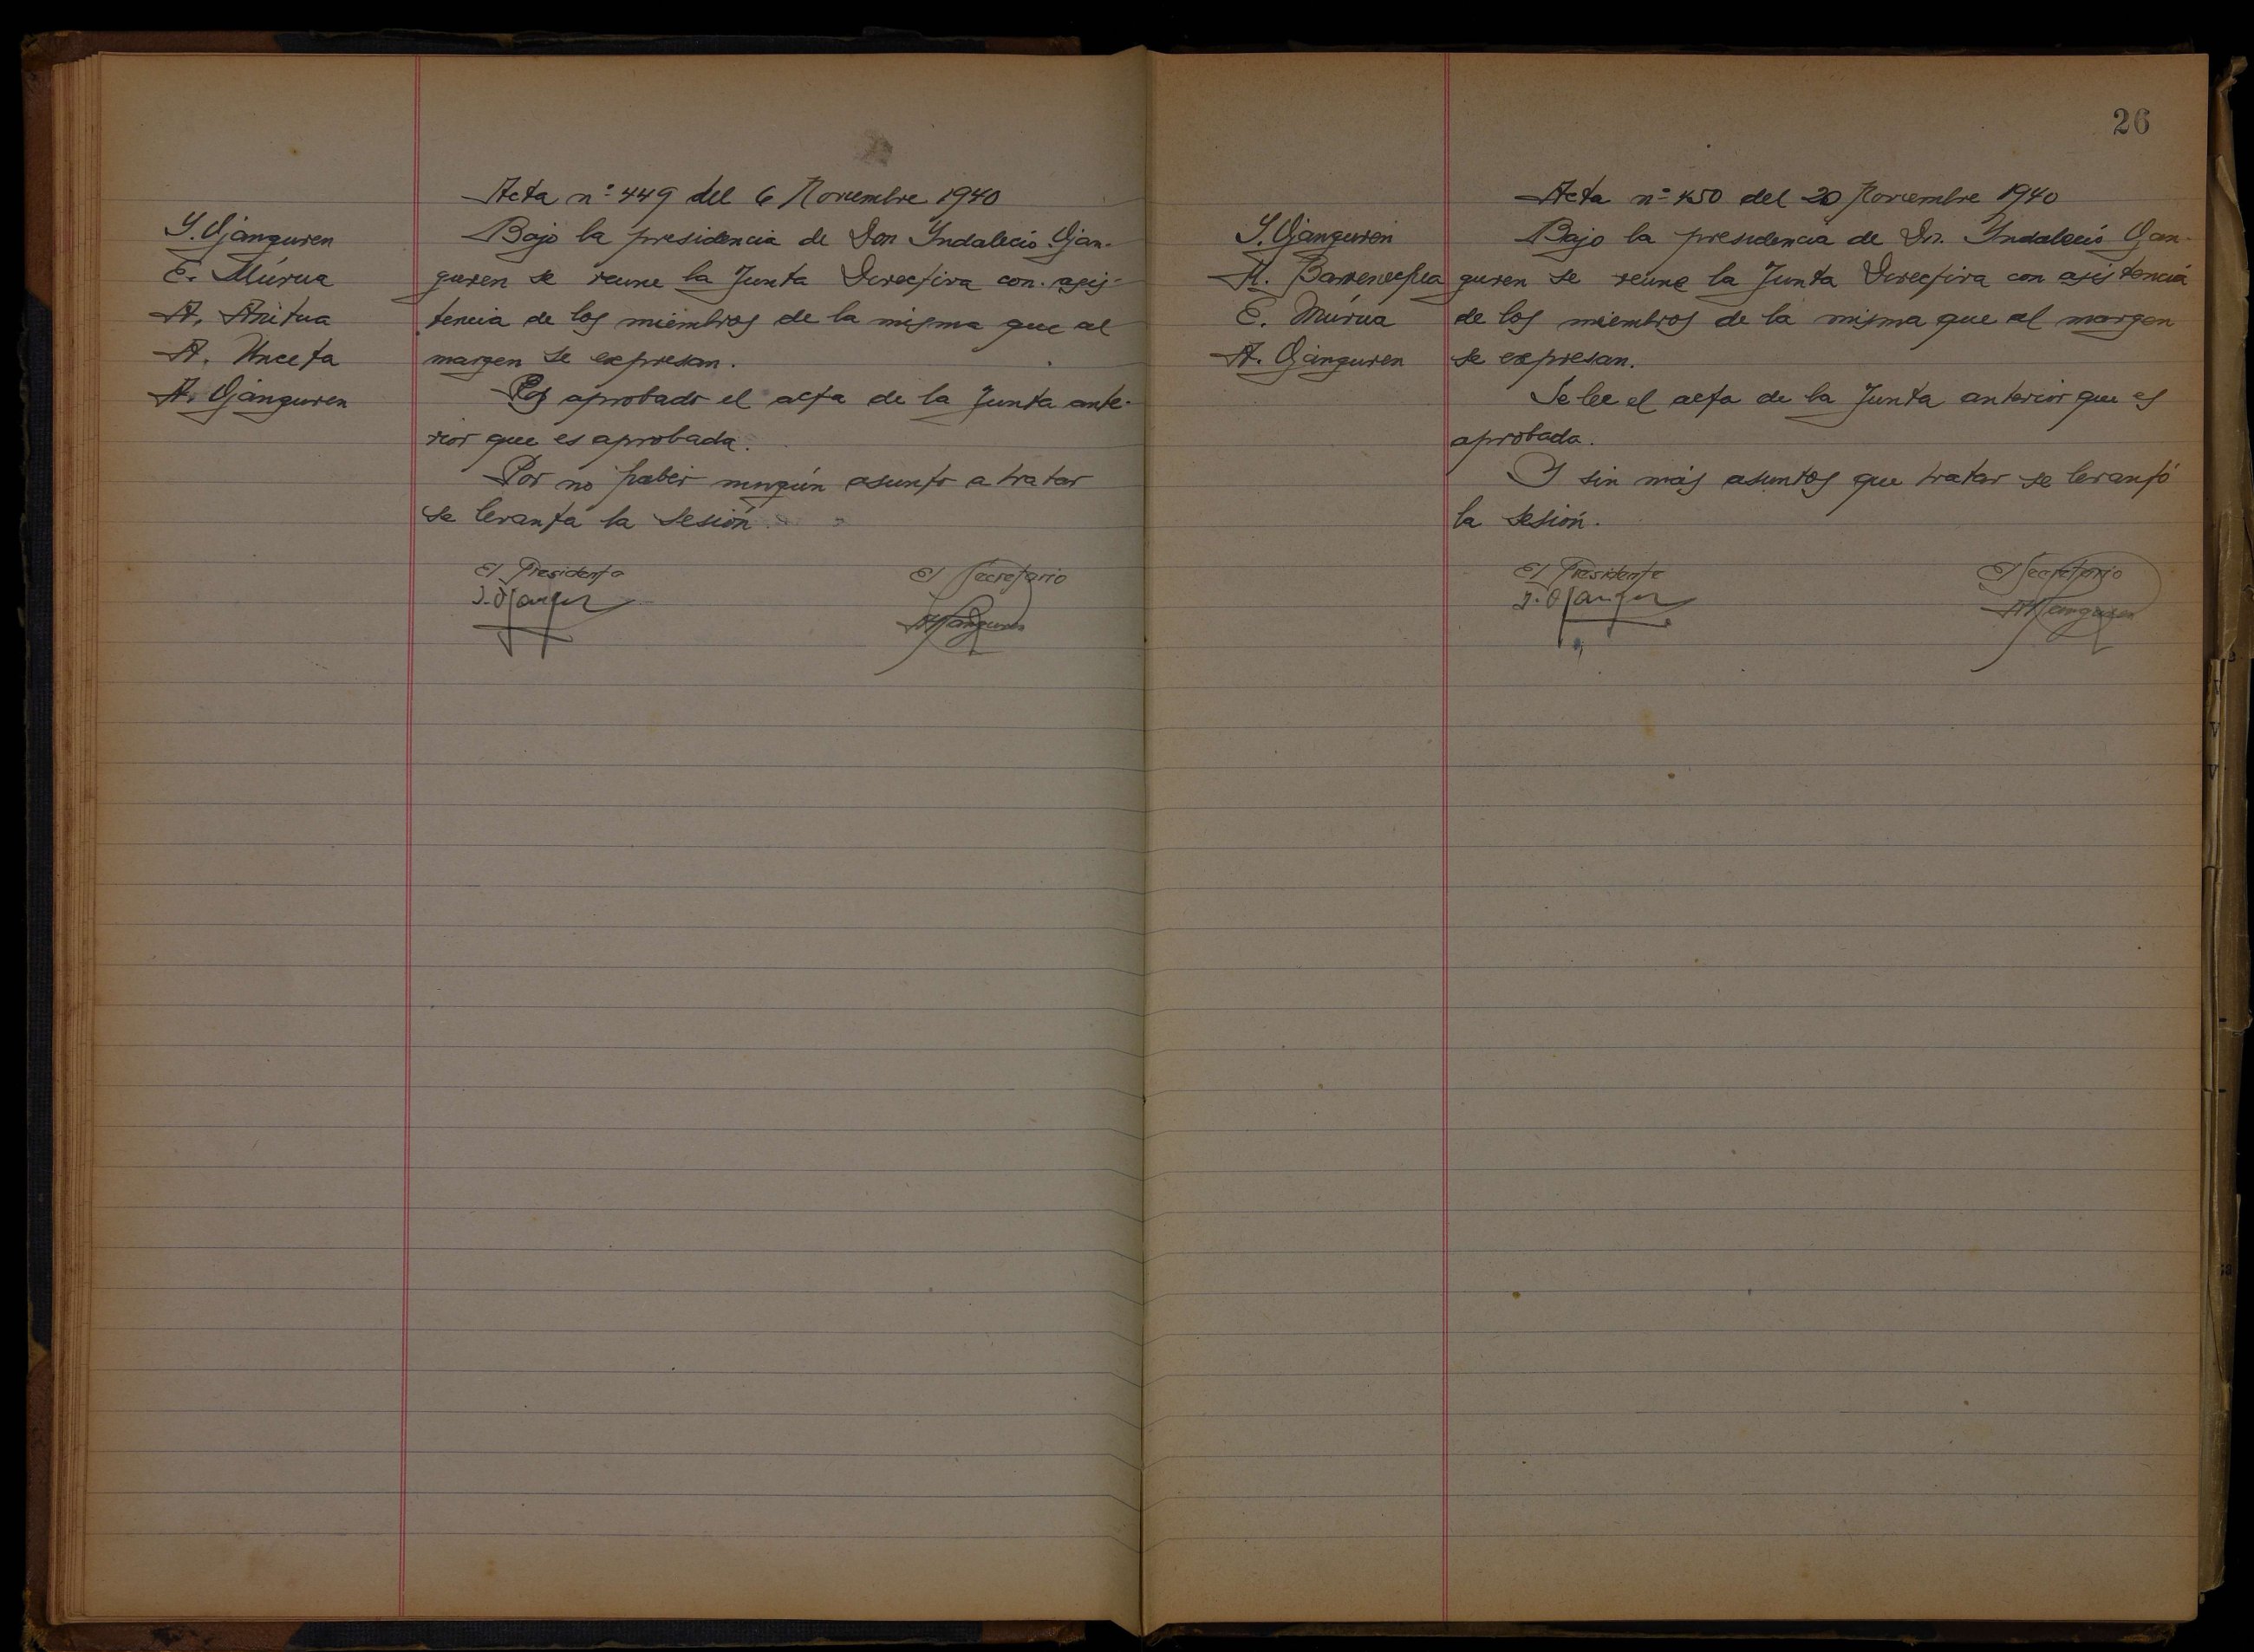 Acta nº 449 del 6 Noviembre 1940
Y. Ojanguren
E. Múrua
A. Anitua
A. Unceta
A. Ojanguren
Bajo la presidencia de Don Yndalecio Ojan-
guren se reune la Junta Directiva con asis-
tencia de los miembros de la misma que al
margen se expresan.
aprobado el acta de la Junta ante-
rior que es aprobada.
Por no haber ningún asunto a tratar
se levanta la sesión.
El Presidente
El Secretario
J. Ojanguren
AOjanguren
26
Acta nº 450 del 20 Noviembre 1940
Y. Ojanguren
A. Barrenechea
E. Múrua
A. Ojanguren
Bajo la presidencia de Dn. Yndalecio Ojan-
guren se reune la Junta Directiva con asistencia
de los miembros de la misma que al margen
se expresan.
Se lee el acta de la Junta anterior que es
aprobada.
Y sin más asuntos que tratar se levantó
la sesión.
El Presidente
El Secretario
J. Ojanguren
AOjanguren